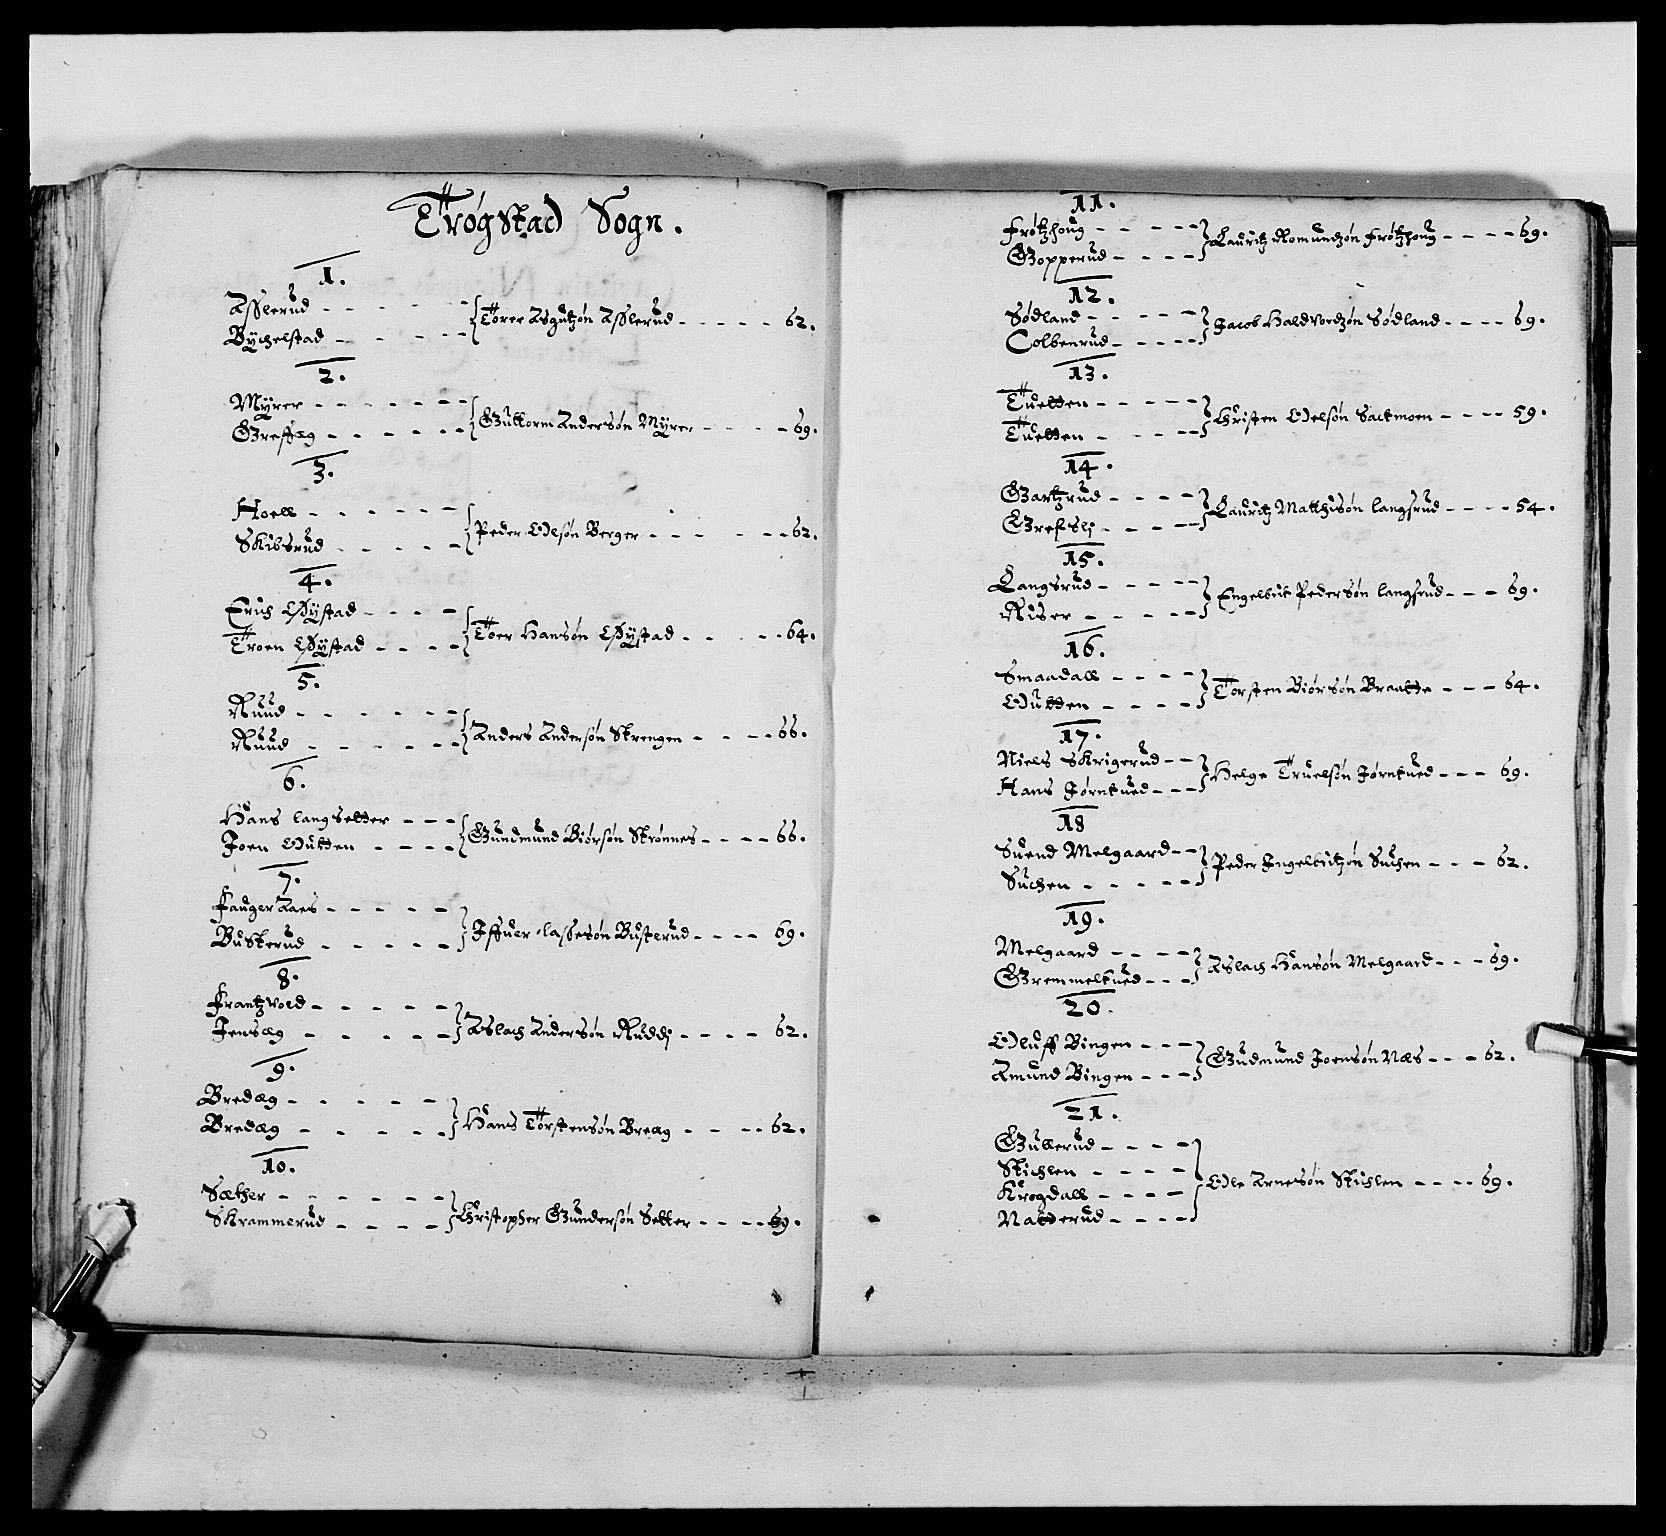 Trøgstad Sogn.
1.
Asslerud - - - - -
Bÿchelstad - - - - Torer Asgutzøn Asslerud - - - - - 62.
2.
Mÿrer - - - - - - -
Greffæg - - - - - - Gullorm Andersøn Mÿrer - - - - - 69.
3.
Hoell - - - - - -
Skibsrud - - - - - Peder Olsøn Berger - - - - - - 62.
4.
Erich Øÿstad - - - -
Troen Øÿstad - - - - Toer Hansøn Øÿstad - - - - - - 64.
5.
Ruud - - - - - -
Ruud - - - - - - Anders Andersøn Strengen - - - - 66.
6.
Hans Langsetter - - -
Joen Outten - - - - Gundmund Biørsøn Strønnes - - - - 66.
7.
Fauger Aaes - - - - -
Busterud - - - - - Iffuer Lassesøn Busterud - - - - 69.
8.
Frantzvold - - - - -
Jensæg - - - - - Aslach Andersøn Ruddj - - - - 62.
9.
Bredæg - - - - -
Bredæg - - - - - Hans Torstensøn Breæg - - - - - 62.
10.
Sæther - - - - - -
Skrammerud - - - - Christopher Gundersøn Setter - - - - 69.
11.
Frøtzhoug - - - - -
Gopperud - - - - Lauritz Romundzøn Frøtzhoug - - - - 69.
12.
Sødland - - - - -
Colbenrud - - - - Jacob Haldvordzøn Sødland - - - - 69.
13.
Tuetten - - - - -
Tuetten - - - - Christen Oelsøn Sactmoen - - - - 59.
14.
Gartzrud - - - -
Grefslj - - - - Lauritz Matthisøn Langsrud - - - - 54.
15.
Langsrud - - - - -
Riiser - - - - - Engelbrit Pedersøn Langsrud - - - 69.
16.
Smaadall - - - -
Outten - - - - Torsten Biørsøn Braatte - - - 64.
17.
Niels Skrigerud - -
Hans Jørntued - - - Helge Truelsøn Jørntued - - - 69.
18
Suend Melgaard - -
Suchen - - - - - Peder Ingelbritzøn Suchen - - - 62.
19.
Melgaard - - - -
Gremmeltued - - - Aslach Hansøn Melgaard - - - 69.
20.
Oluff Bingen - - -
Amund Bingen - - - Gudmund Joensøn Næs - - - 62.
21.
Gullerud - - - -
Stichlen - - - -
Krogdall - - - -
Natterud - - - - Ole Arnesøn Stichlen - - - - 69.